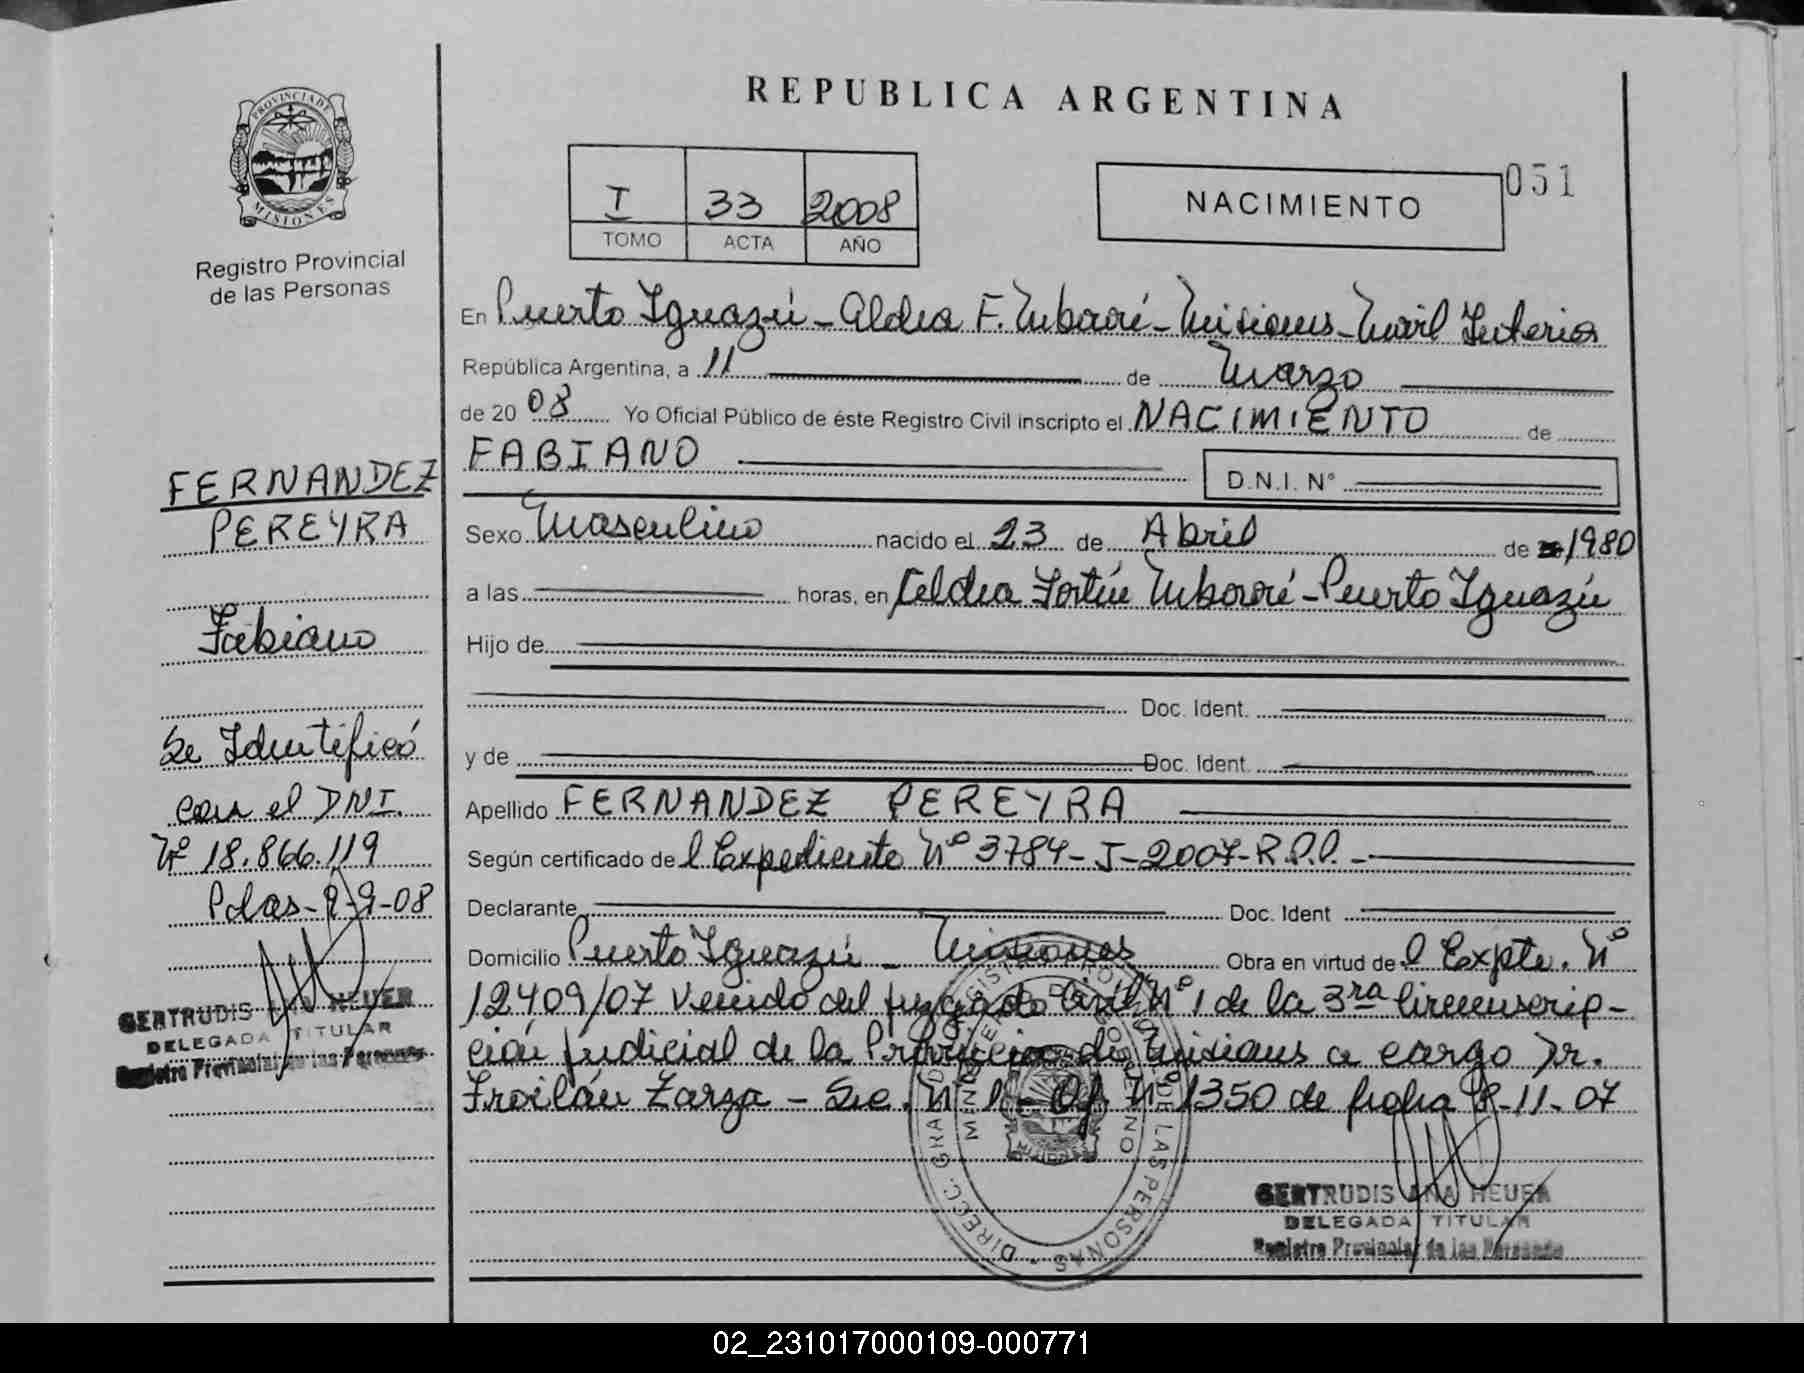 REPUBLICA ARGENTINA
PROVINCIA DE
MISIONES
Registro Provincial
de las Personas
I 33 2008
TOMO ACTA AÑO
NACIMIENTO
051
En Puerto Iguazú - Aldea F. Mbororé - Misiones - Movil Interior
República Argentina, a 11 de Marzo
de 2008 Yo Oficial Público de éste Registro Civil inscripto el NACIMIENTO de
FABIANO D.N.I. Nº
Sexo Masculino nacido el 23 de Abril de 1980
a las horas, en Aldea Fortín Mbororé - Puerto Iguazú
Hijo de
Doc. Ident.
y de Doc. Ident.
Apellido FERNANDEZ PEREYRA
Según certificado del Expediente Nº 3784-J-2007-R.P.P.
Declarante Doc. Ident
Domicilio Puerto Iguazú - Misiones Obra en virtud del Expte. Nº
12409/07 Venido del juzgado Civil Nº 1 de la 3ra Circunscrip-
ción judicial de la Provincia de Misiones a cargo Dr.
Froilán Zarza - Sec. Nº 1 - Of Nº 1350 de fecha 8-11-07
GERTRUDIS ANA HEUER
DELEGADA TITULAR
Registro Provincial de las Personas
FERNANDEZ
PEREYRA
Fabiano
Se Identificó
con el DNI.
Nº 18.866.119
Pdas-9-9-08
GERTRUDIS ANA HEUER
DELEGADA TITULAR
Registro Provincial de las Personas
DIRECC. GRAL. DE REGISTRO DE LAS PERSONAS
02_231017000109-000771